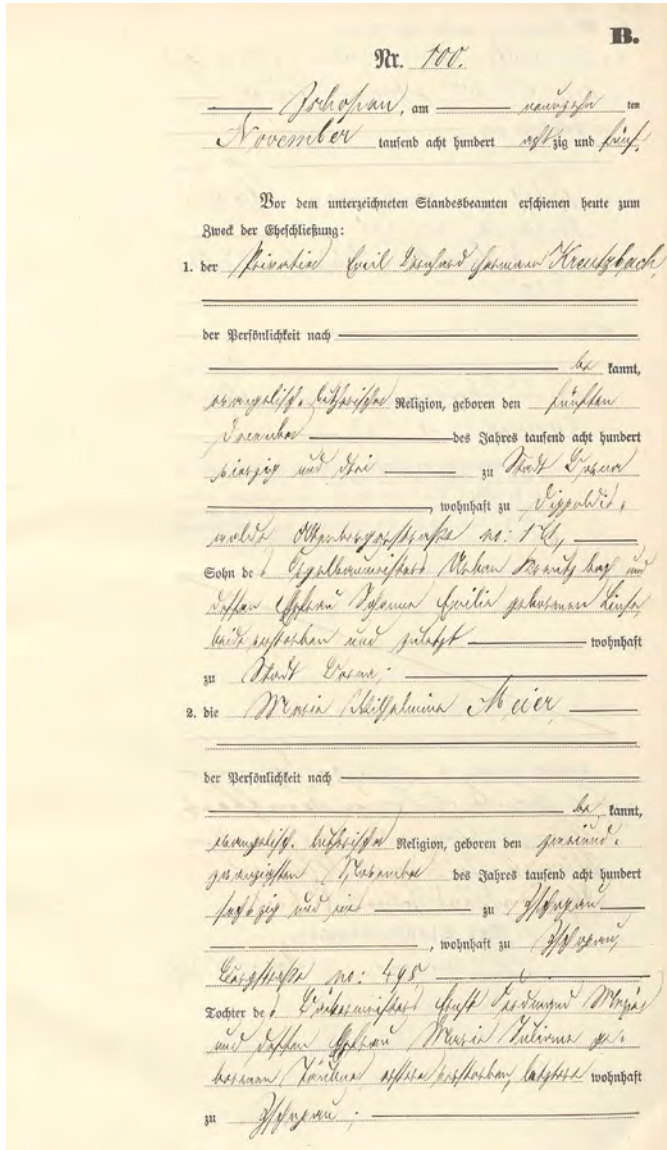 B.
Nr. 100.
Zschopau, am neunzehn ten
November tausend acht hundert achtzig und fünf.
Vor dem unterzeichneten Standesbeamten erschienen heute zum
Zweck der Eheschließung:
1. der Privatier Emil Bernhard Hermann Kreutzbach,
der Persönlichkeit nach
be kannt,
evangelisch-lutherischer Religion, geboren den fünften
December des Jahres tausend acht hundert
vierzig und drei zu Stadt Borna
, wohnhaft zu Dippoldis-
walde, Altenbergerstraße no: 174,
Sohn des Orgelbaumeisters Urban Kreutzbach und
dessen Ehefrau Johanne Emilie geborenen Linse,
beide verstorben und zuletzt wohnhaft
zu Stadt Borna.
2. die Marie Wilhelmine Meier,
der Persönlichkeit nach
be kannt,
evangelisch-lutherischer Religion, geboren den zweiund-
zwanzigsten November des Jahres tausend acht hundert
sechszig und ein zu Zschopau
, wohnhaft zu Zschopau,
Burgstraße no: 495,
Tochter des Bäckermeisters Ernst Ferdinand Meier
und dessen Ehefrau Marie Juliane ge-
borenen Täubner, erstere verstorben, letztere wohnhaft
zu Zschopau.